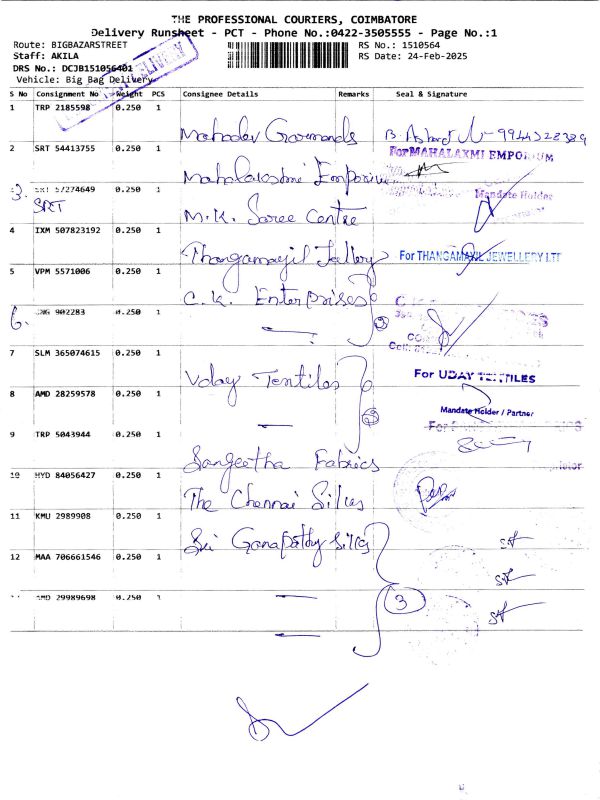 THE PROFESSIONAL COURIERS, COIMBATORE
Delivery Runsheet - PCT - Phone No.:0422-3505555 - Page No.:1
Route: BIGBAZARSTREET
RS No.: 1510564
Staff: AKILA
RS Date: 24-Feb-2025
DRS No.: DCJB151056401
Vehicle: Big Bag Delivery
DELIVERY
S No Consignment No Weight PCS Consignee Details Remarks Seal & Signature
1 TRP 2185598 0.250 1 Mahadev Garmands 
2 SRT 54413755 0.250 1 Mahalakshmi Emporium For MAHALAXMI EMPORIUM
3. SRT 57274649 0.250 1 M.K. Saree Centre Mandate Holder
SRT
4 IXM 507823192 0.250 1 Thangamayil Jallery For THANGAMAYIL JEWELLERY LTD
5 VPM 5571006 0.250 1 C.K. Enterprises
6. 902283 0.250 1 2
7 SLM 365074615 0.250 1 Uday Textiles For UDAY TEXTILES
8 AMD 28259578 0.250 1 2 Mandate Holder / Partner
9 TRP 5043944 0.250 1 Sangeetha Fabrics
10 HYD 84056427 0.250 1 The Chennai Silks
11 KMU 2989908 0.250 1 Sri Ganapathy Silks
12 MAA 706661546 0.250 1
AMD 29989698 0.250 1 3